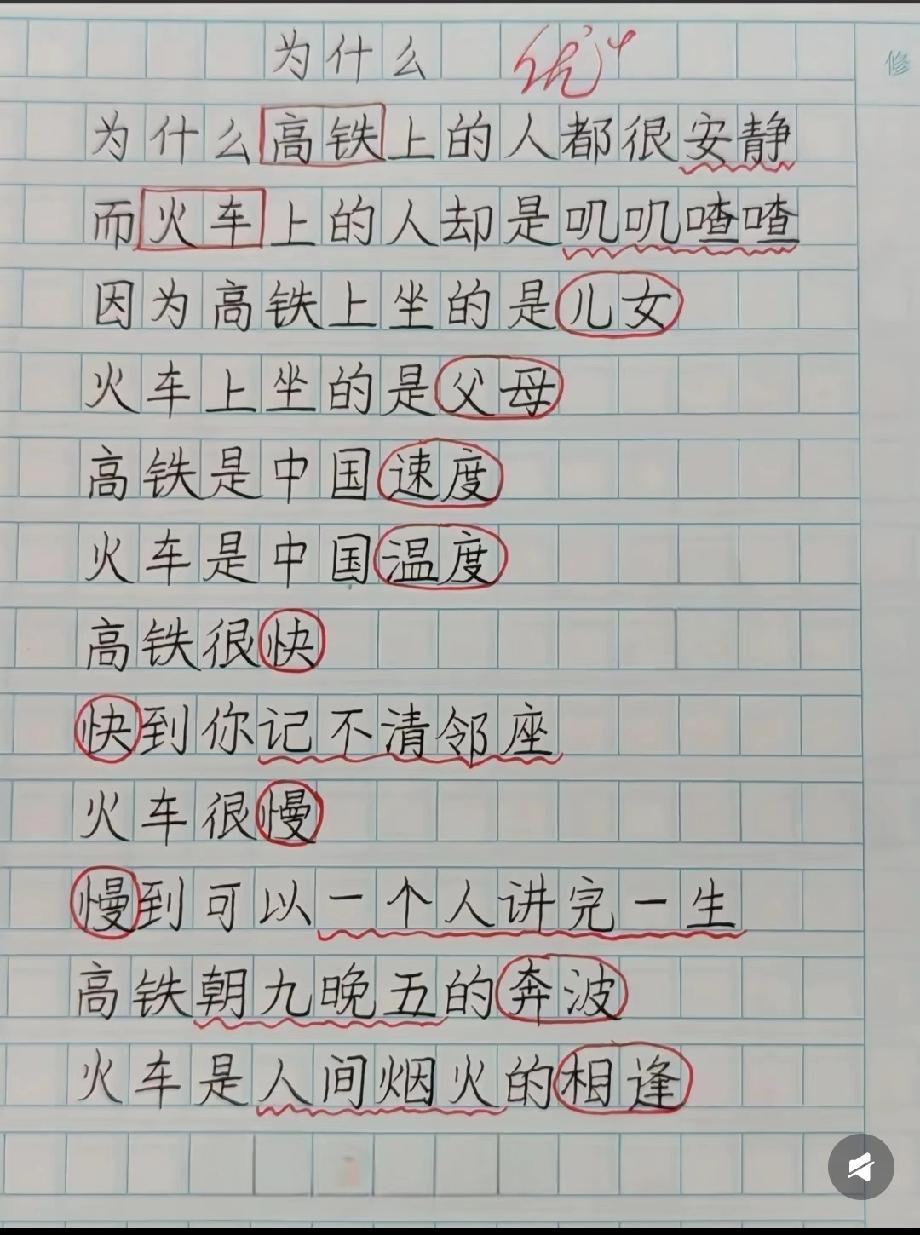 为什么 优
修
为什么高铁上的人都很安静
而火车上的人却是叽叽喳喳
因为高铁上坐的是儿女
火车上坐的是父母
高铁是中国速度
火车是中国温度
高铁很快
快到你记不清邻座
火车很慢
慢到可以一个人讲完一生
高铁朝九晚五的奔波
火车是人间烟火的相逢